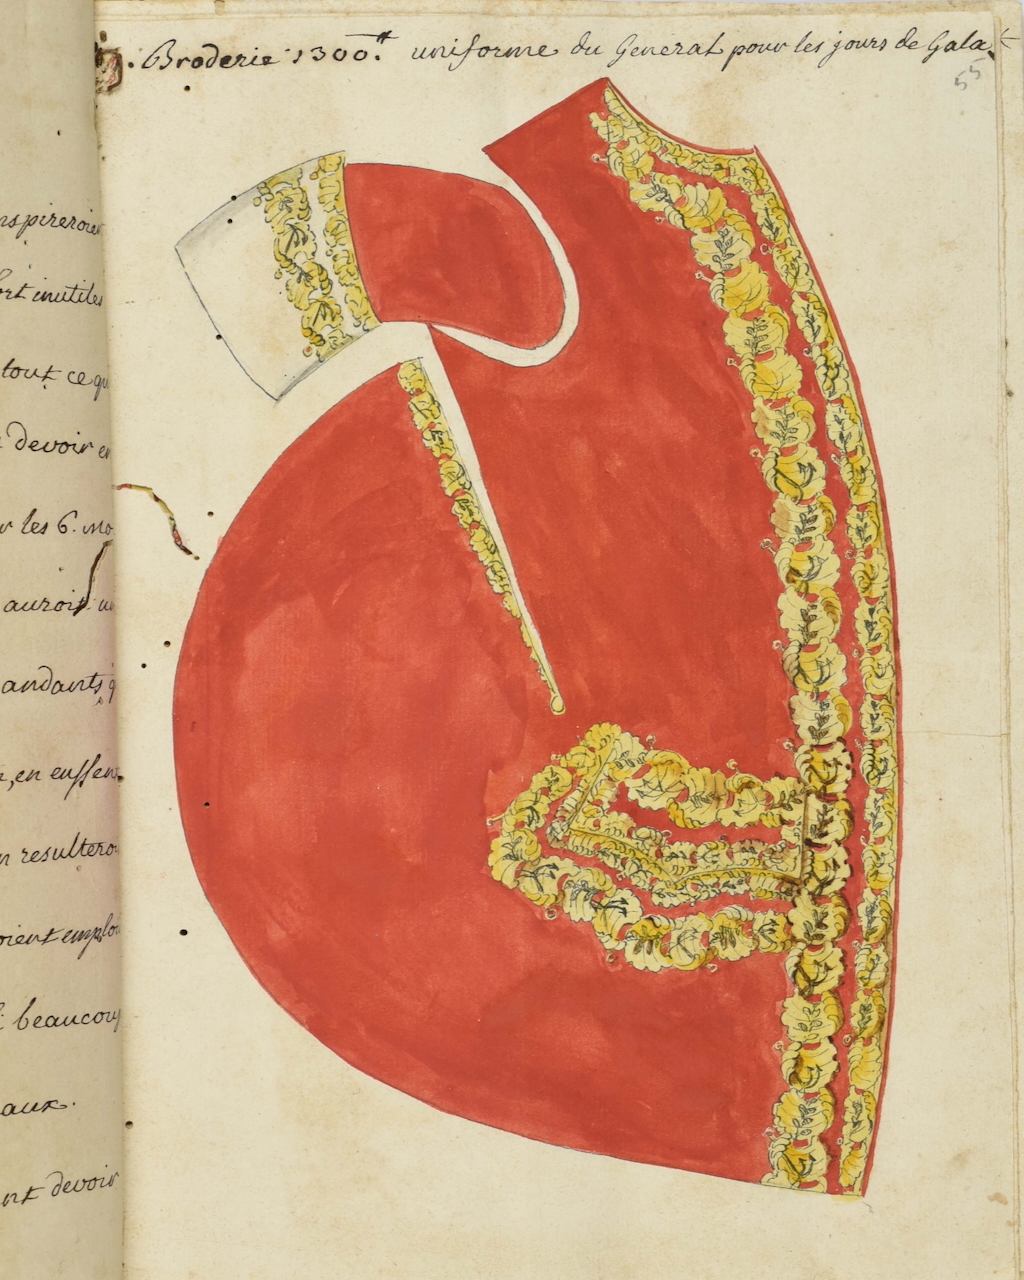 Broderie 1300.ᵗᵗ uniforme du General pour les jours de Gala
55
nspireroie
ort inutiles
tout ce qu
devoir en
r les 6. mo
auroit un
andants q
, en eussen
n resultero
oient emplo
beaucoup
aux.
nt devoir